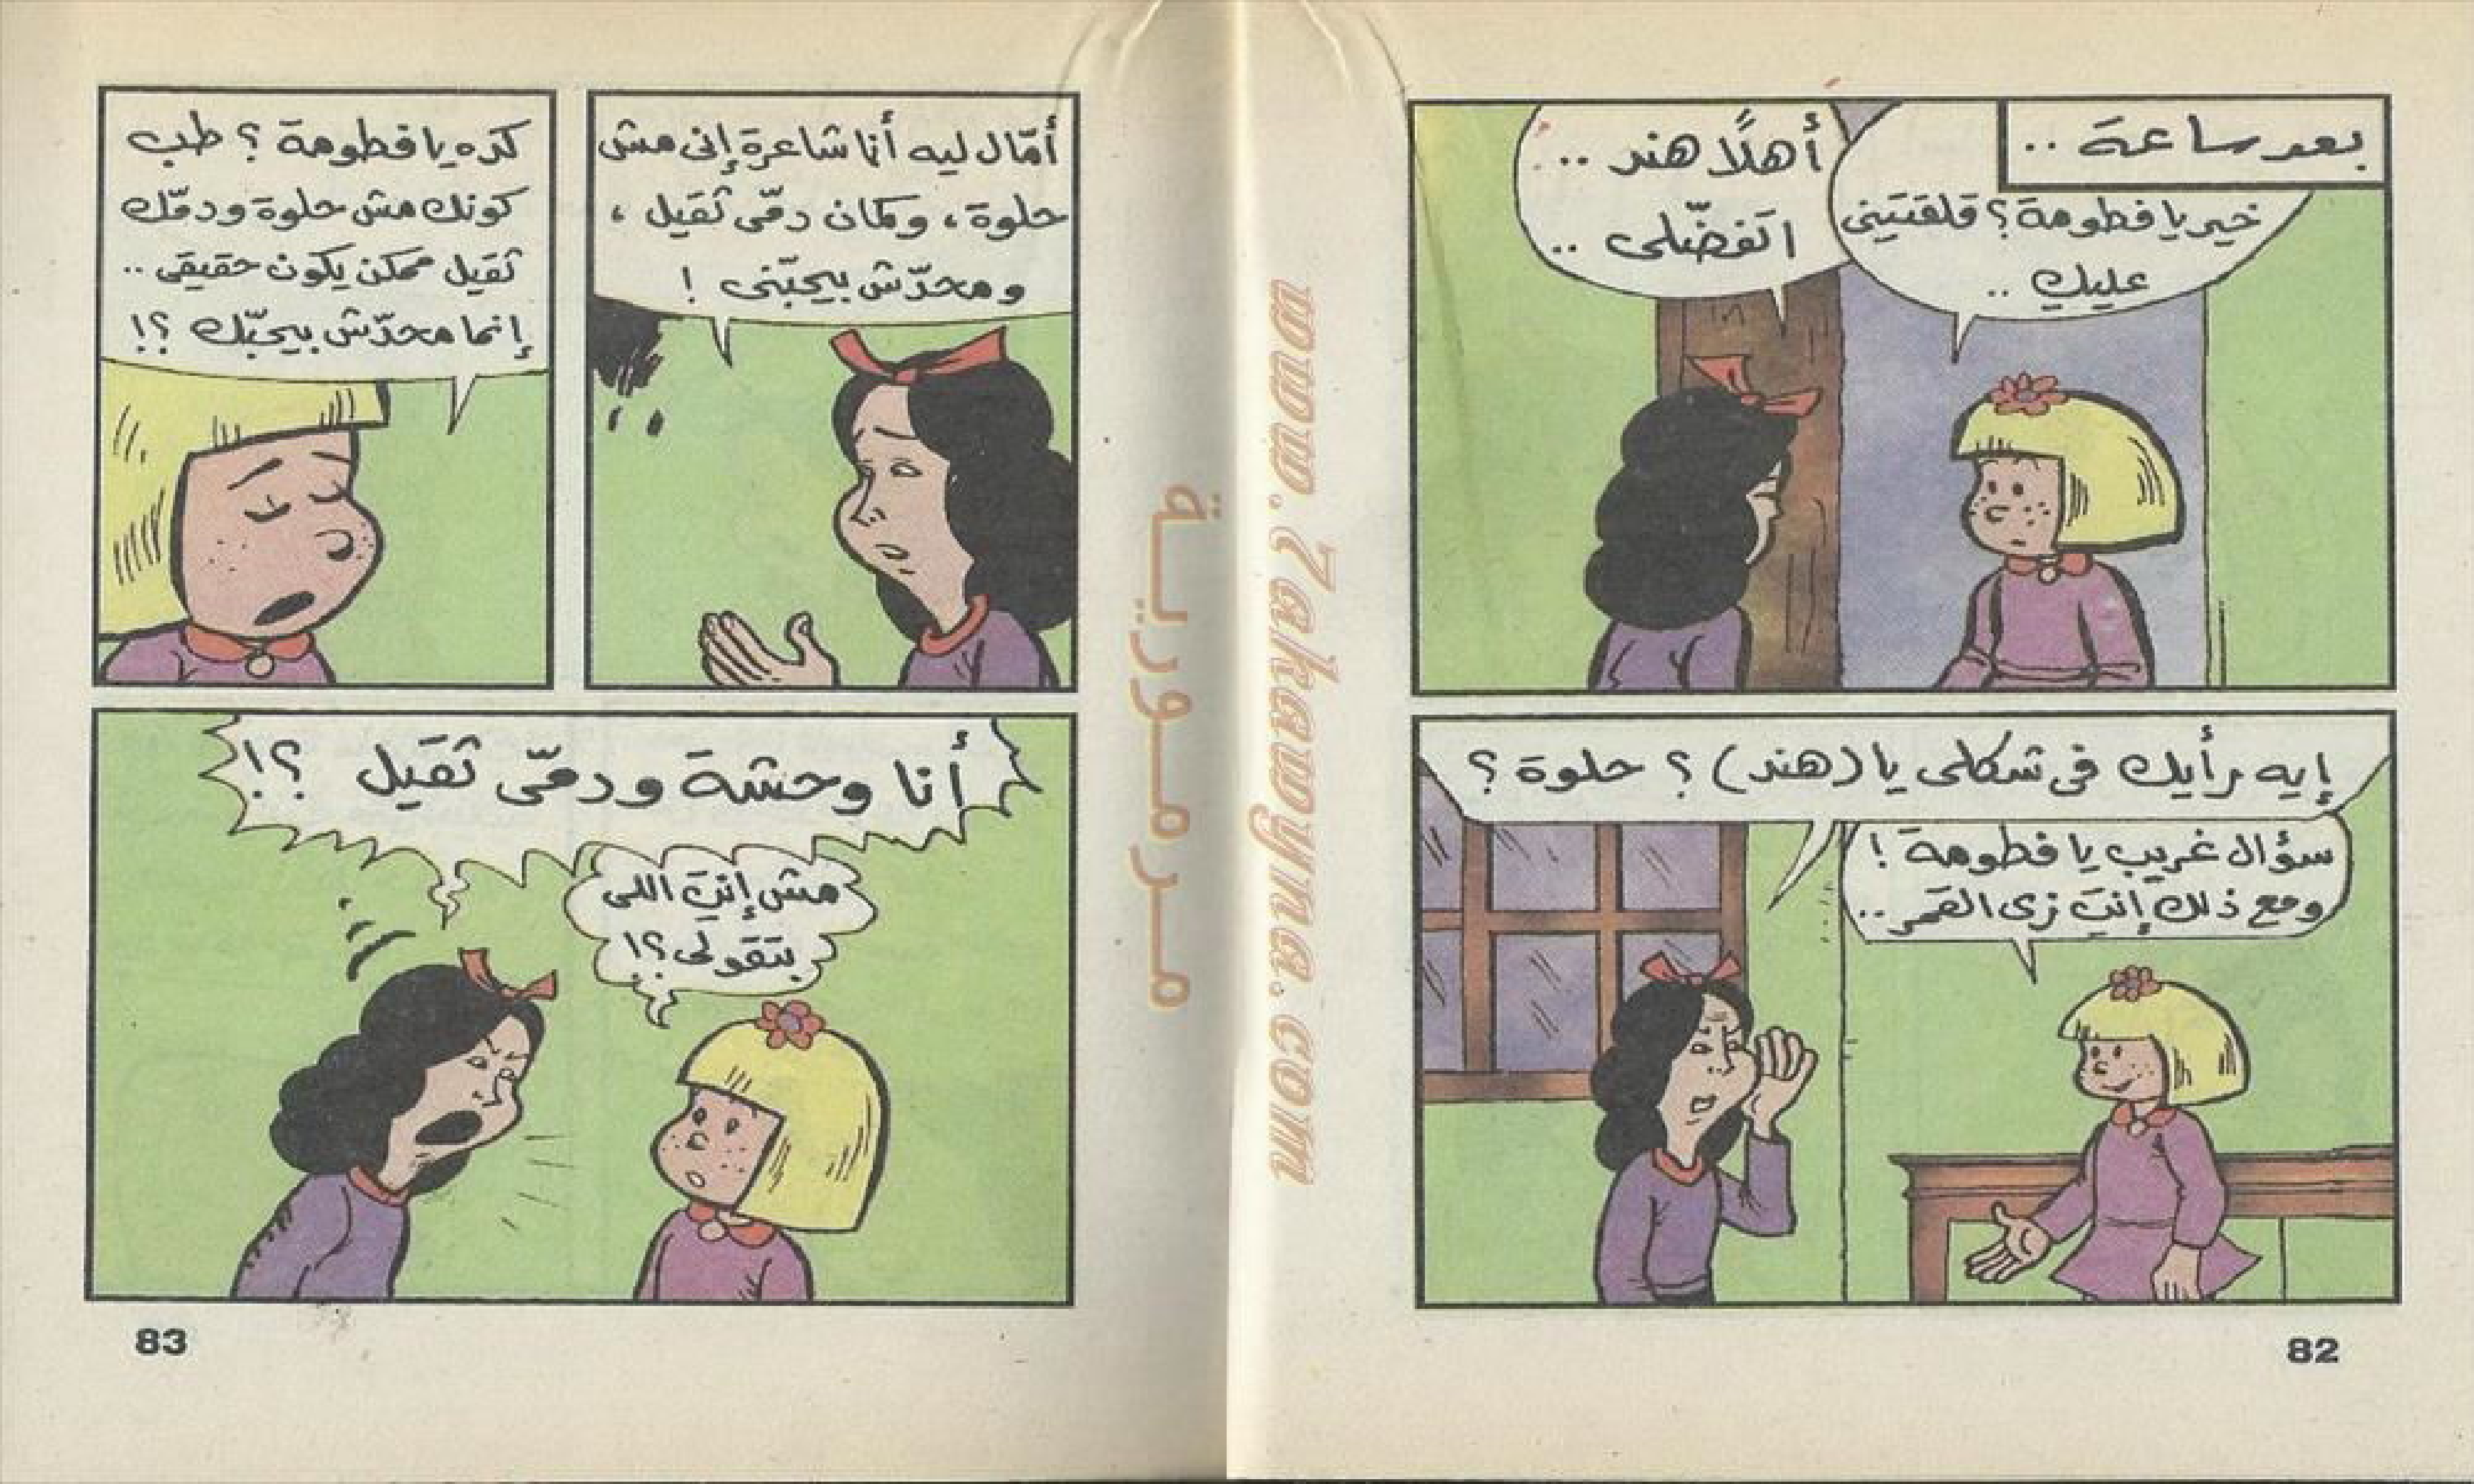 بعد ساعة ..
خير يا فطومة؟ قلقتيني
عليك ..
أهلًا هند ..
اتفضّلى ..
إيه رأيك فى شكلى يا (هند) ؟ حلوة ؟
سؤال غريب يا فطومة !
ومع ذلك إنتِ زى القمر ..
82
أمّال ليه أنا شاعرة إنى مش
حلوة ، وكمان دمّى ثقيل ،
ومحدّش بيحبّنى !
كده يا فطومة ؟ طب
كونك مش حلوة ودمّك
ثقيل ممكن يكون حقيقى ..
إنما محدّش بيحبّك ؟!
أنا وحشة ودمّى ثقيل ؟!
مش إنتِ اللى
بتقولى ؟!
83
مرمورية
www.7akawyna.com